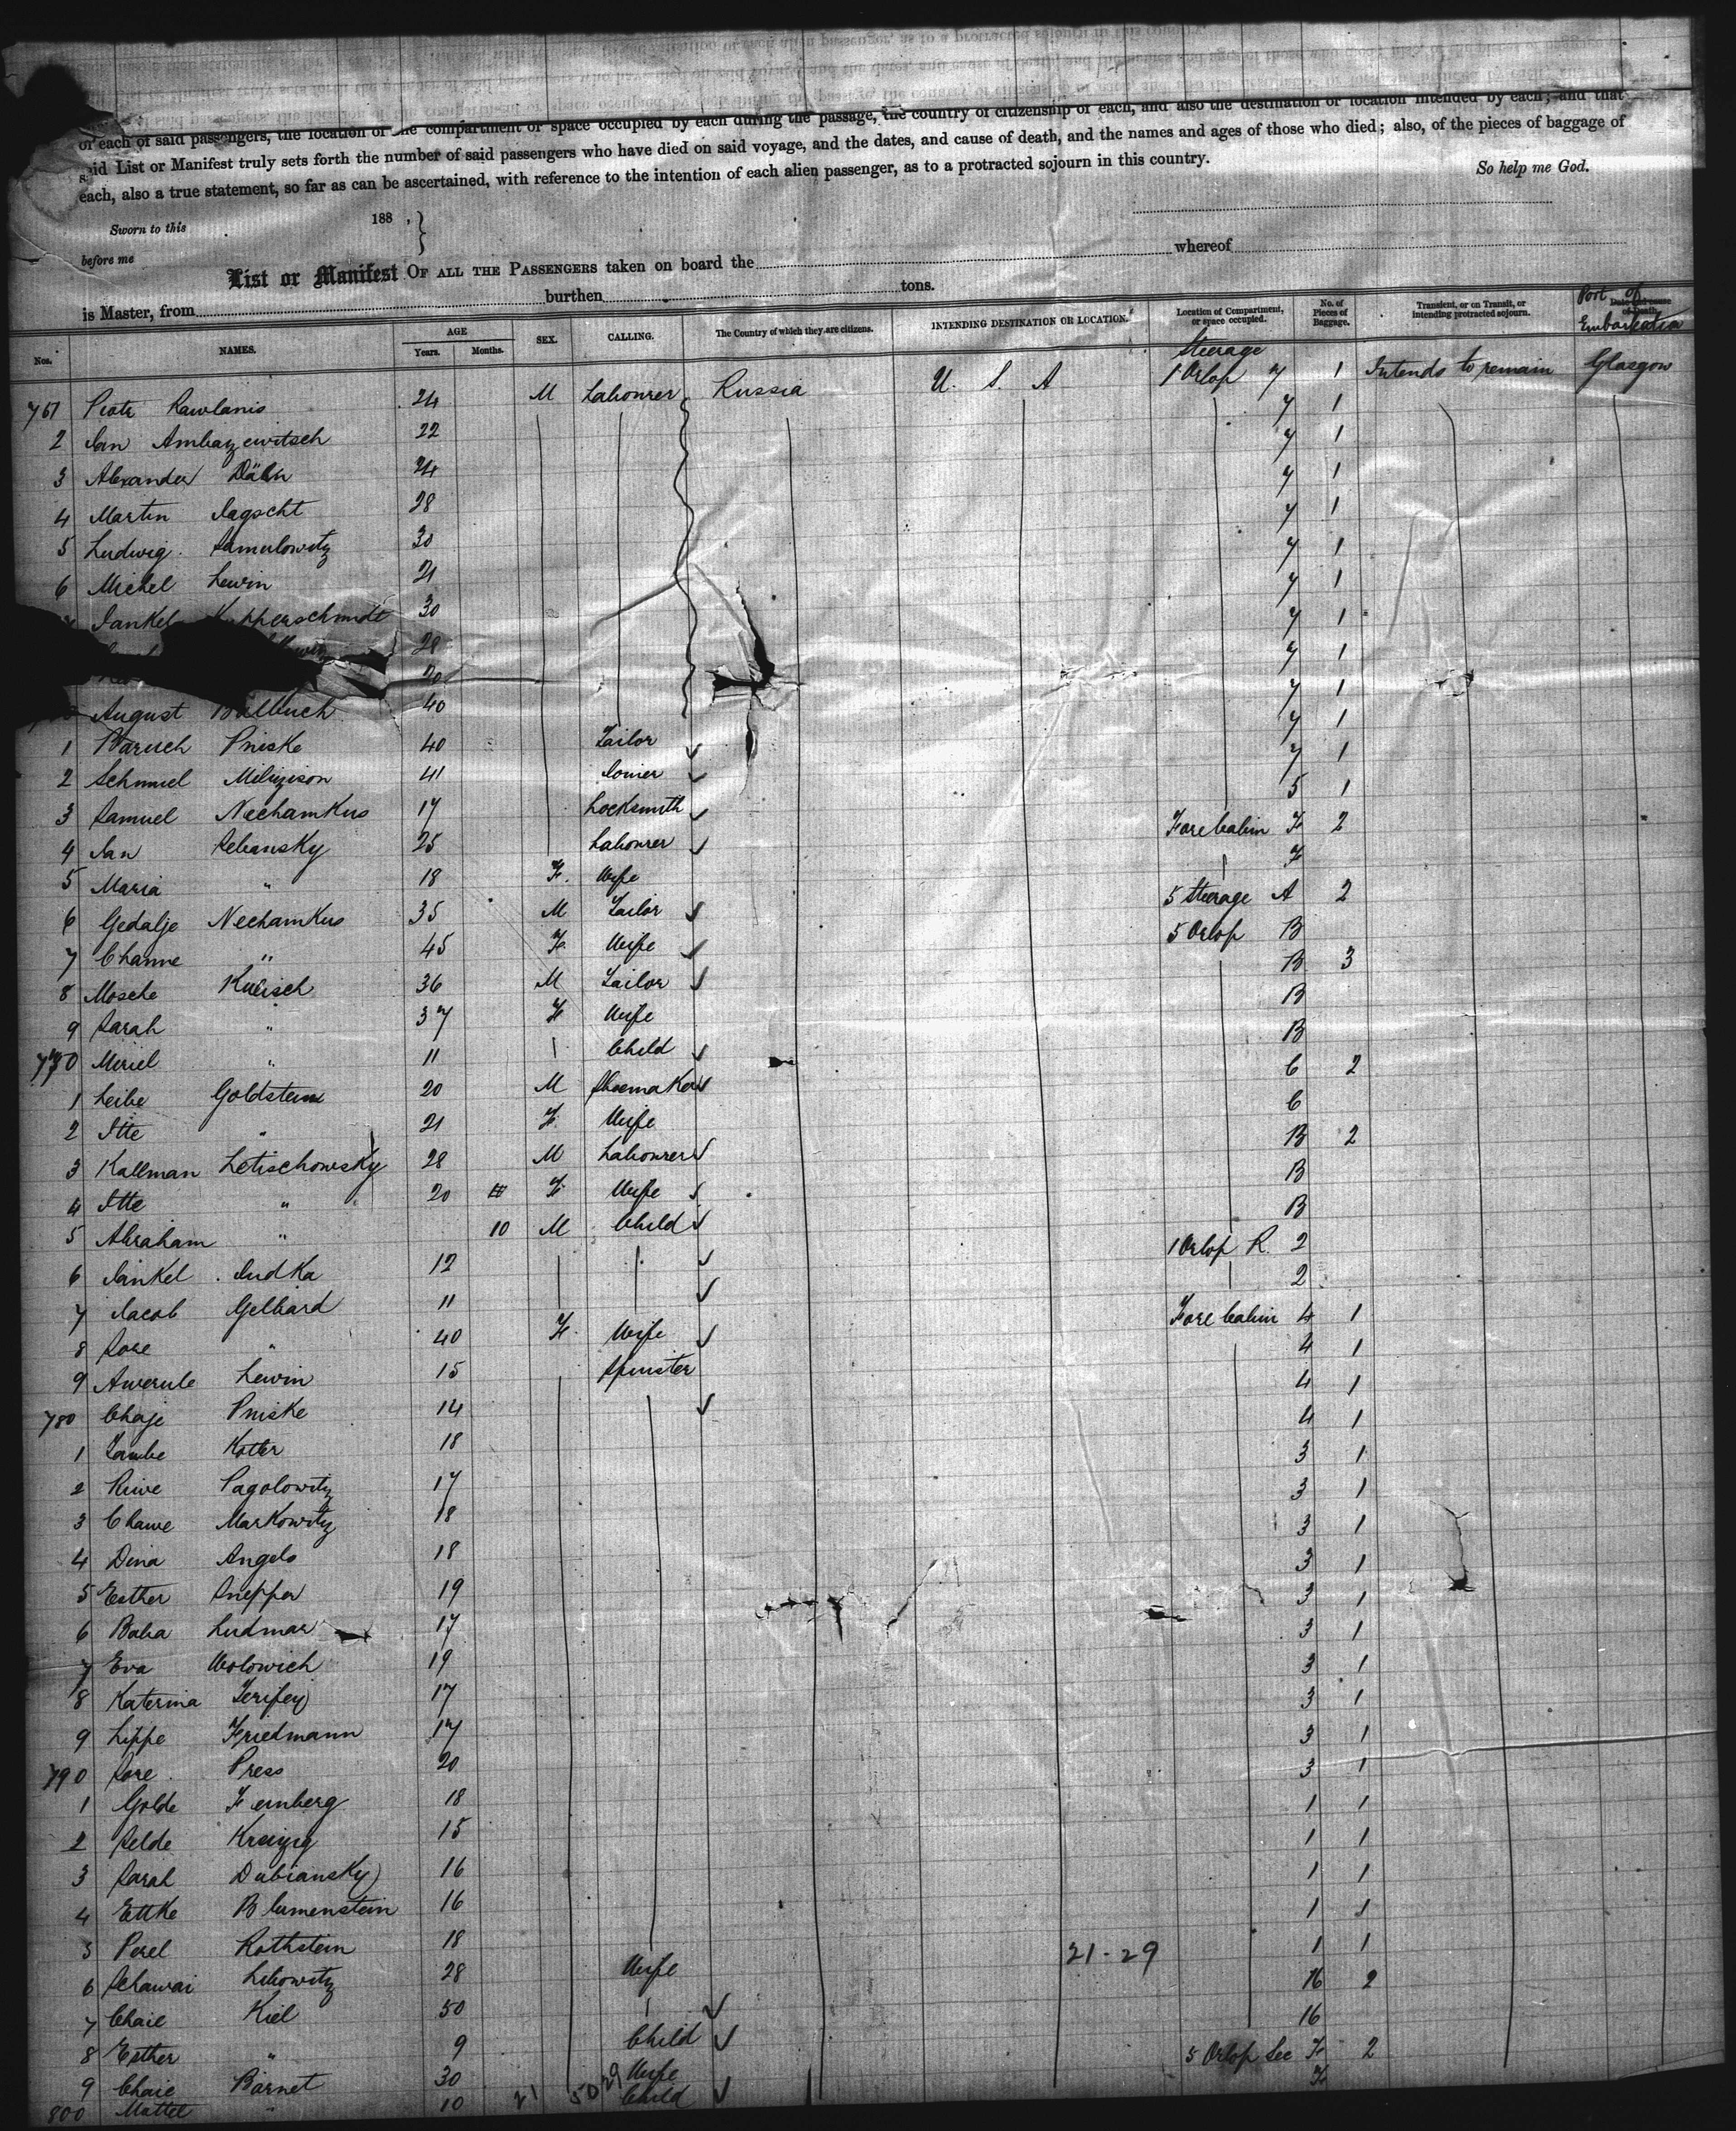 of each of said passengers, the location of the compartment or space occupied by each during the passage, the country of citizenship of each, and also the destination or location intended by each; and that
said List or Manifest truly sets forth the number of said passengers who have died on said voyage, and the dates, and cause of death, and the names and ages of those who died; also, of the pieces of baggage of
each, also a true statement, so far as can be ascertained, with reference to the intention of each alien passenger, as to a protracted sojourn in this country.
So help me God.
Sworn to this 188 ,
before me
List or Manifest OF ALL THE PASSENGERS taken on board the whereof
is Master, from burthen tons.
Nos. NAMES. AGE Years. Months. SEX. CALLING. The Country of which they are citizens. INTENDING DESTINATION OR LOCATION. Location of Compartment, or space occupied. No. of Pieces of Baggage. Transient, or on Transit, or intending protracted sojourn. Port of Embarkation
Steerage
751 Piotr Rawlanis 24 M Labourer Russia U. S. A 1 Orlop 7 1 Intends to remain Glasgow
2 Jan Ambazewitsch 22 7 1
3 Alexander 24 7 1
4 Martin Jagscht 28 7 1
5 Ludwig Samulowitz 30 7 1
6 Michel Lewin 21 7 1
Jankel Kupperschmidt 30 7 1
28 7 1
20 7 1
August 40 7 1
1 Baruch Pniske 40 Tailor 7 1
2 Schmuel Milizison 41 Joiner 7 1
3 Samuel Nechamkus 17 Locksmith 5 1
4 Jan Sebansky 25 Labourer Fore Cabin F 2
5 Maria " 18 F. Wife F
6 Gedalje Nechamkus 35 M Tailor 5 Steerage A 2
7 Channe " 45 F. Wife 5 Orlop B
8 Mosche Kulisch 36 M Tailor B 3
9 Sarah " 37 F Wife B
770 Meriel " 11 Child B
1 Leibe Goldstein 20 M Shoemaker C 2
2 Itte " 21 F. Wife C
3 Kallman Letischowsky 28 M Labourer B 2
4 Itte " 20 F Wife B
5 Abraham " 10 M Child B
6 Jankel Judka 12 1 Orlop R. 2
7 Jacob Gelbard 11 2
8 Sore " 40 F. Wife Fore Cabin 4 1
9 Awerule Lewin 15 Spinster 4 1
780 Chaje Pniske 14 4 1
1 Taube Kotter 18 4 1
2 Riwe Pagolowitz 17 3 1
3 Chawe Markowitz 18 3 1
4 Dina Angels 18 3 1
5 Esther Sneppa 19 3 1
6 Baba Ludmar 17 3 1
7 Eva Wolowich 19 3 1
8 Katerina 17 3 1
9 Lippe Friedmann 17 3 1
790 Sore Press 20 3 1
1 Golde Fernberg 18 3 1
2 Selde Kreizig 15 1 1
3 Sarah Dubiansky 16 1 1
4 Ettke Blumenstein 16 1 1
5 Perel Rothstein 18 1 1
21-29
6 Schawai Libowitz 28 Wife 1 1
7 Chaie Kiel 50 16 2
8 Esther " 9 Child 16
9 Chaie Barnet 30 Wife 5 Orlop See F 2
800 Mottel " 10 21 50 29 Child F